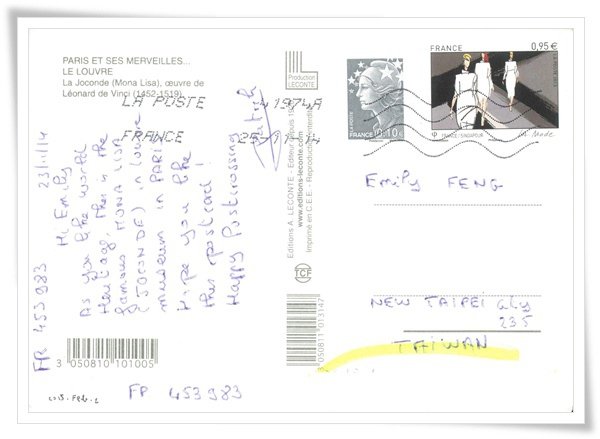 PARIS ET SES MERVEILLES...
LE LOUVRE
La Joconde (Mona Lisa), œuvre de
Léonard de Vinci (1452-1519)
LA POSTE
41974A
FRANCE
25-11-14
23/11/14
Hi Emily
As you like world
Heritage, this is the
famous MONA LISA
(JOCONDE) in Louvre
museum in PARIS
Hope you like
this postcard!
Happy Postcrossing
FR 453983
3 050810 101005
FR 453983
Production
LECONTE
Editions A. LECONTE - Editeur depuis
www.editions-leconte.com
Imprimé en C.E.E - Reproduction interdite
TCF
3 050811 013147
FRANCE
0,10€
FRANCE
0,95€
La Mode
Emily FENG
NEW TAIPEI City
235
TAIWAN